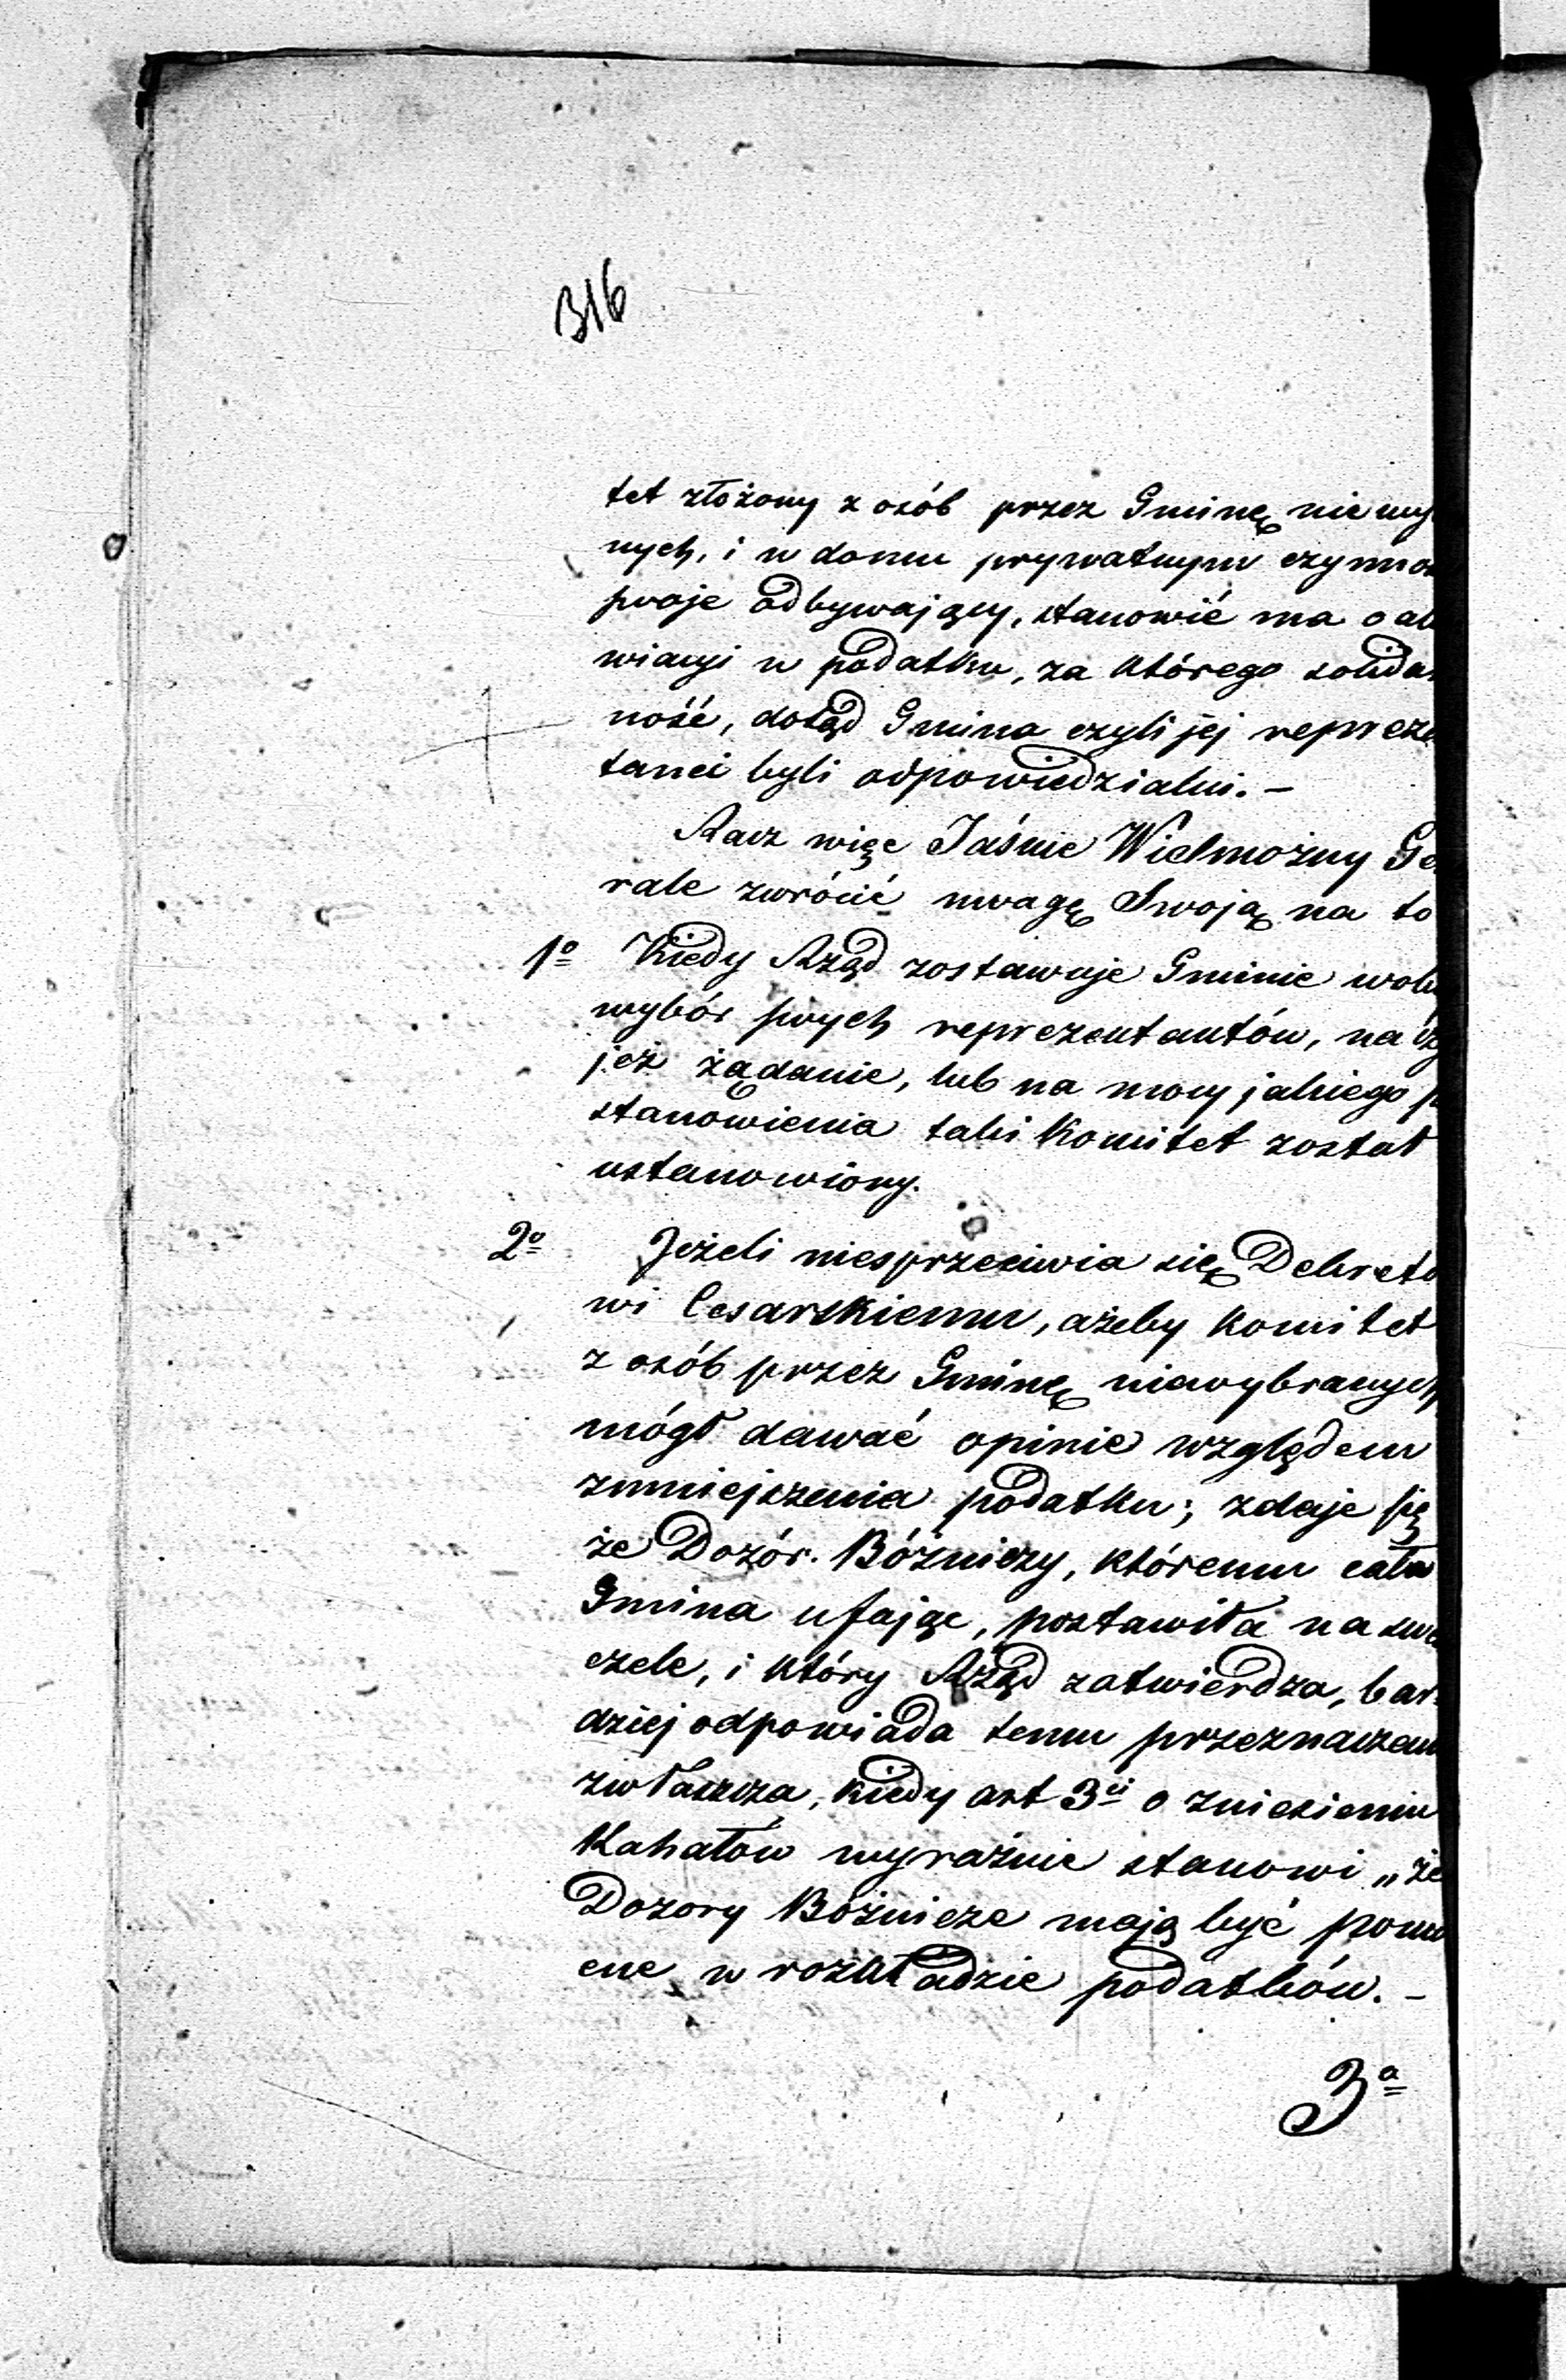 316
tet złożony z osób przez Gminę nie wy
nych, i w domu prywatnym czynnoś
swoje odbywający, stanowić ma o ale
wiacyi w podatku, za którego solidar
ność, dotąd Gmina czyli jej repreze
tanci byli odpowiedzialni. –
Racz więc Jaśnie Wielmożny Ge
rale zwrócić uwagę Swoją na to
1º Kiedy Rząd zostawuje Gminie wol
wybór swych reprezentantów, na cz
jeż żądanie, lub na mocy jakiego p
stanowienia taki Komitet został
ustanowiony.
2º Jeżeli niesprzeciwia się Dekreto
wi Cesarskiemu, ażeby Komitet
z osób przez Gminę niewybranych
mógł dawać opinie względem
zmniejszenia podatku; zdaje się
że Dozór Bóżniczy, któremu cała
Gmina ufając, postawiła na swe
czele, i który Rząd zatwierdza, bar
dziej odpowiada temu przeznaczen
zwłaszcza, kiedy art 3ci o zniesieniu
Kahałów wyraźnie stanowi „że
Dozory Bóżnicze mają być pomo
cne w rozkładzie podatków. –
3º